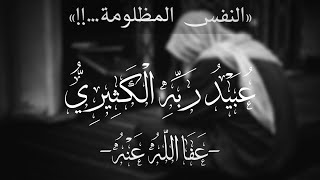 «النفس المظلومة...!!»
عُبَيْدُ رَبِّهِ الْكَثِيرِيُّ
-عَفَا اللَّهُ عَنْهُ-